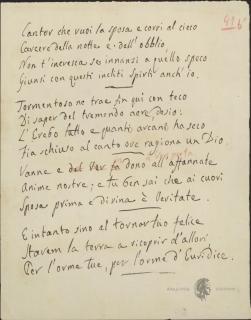 41 6
Cantor che vuoi la sposa e corri al cieco
Carcere della notte e dell'obblio,
Non t'incresca se innansi a quello speco
Giunsi con questi incliti Spirti anch'io.
Tormentoso ne trae fin qui con teco
Di saper del tremendo nere desio:
L'Erebo tutto e quanti arcani ha seco
Fia schiuso al canto ove ragiona un Dio
Vanne e del ver fa dono all'affannate
Anime nostre; e tu ben sai che ai cuori
Sposa prima e divina è Veritate.
E intanto sino al tornar tuo felice
Starem la terra a ricoprir d'allori
Per l'orme tue, per l'orme d'Euridice.